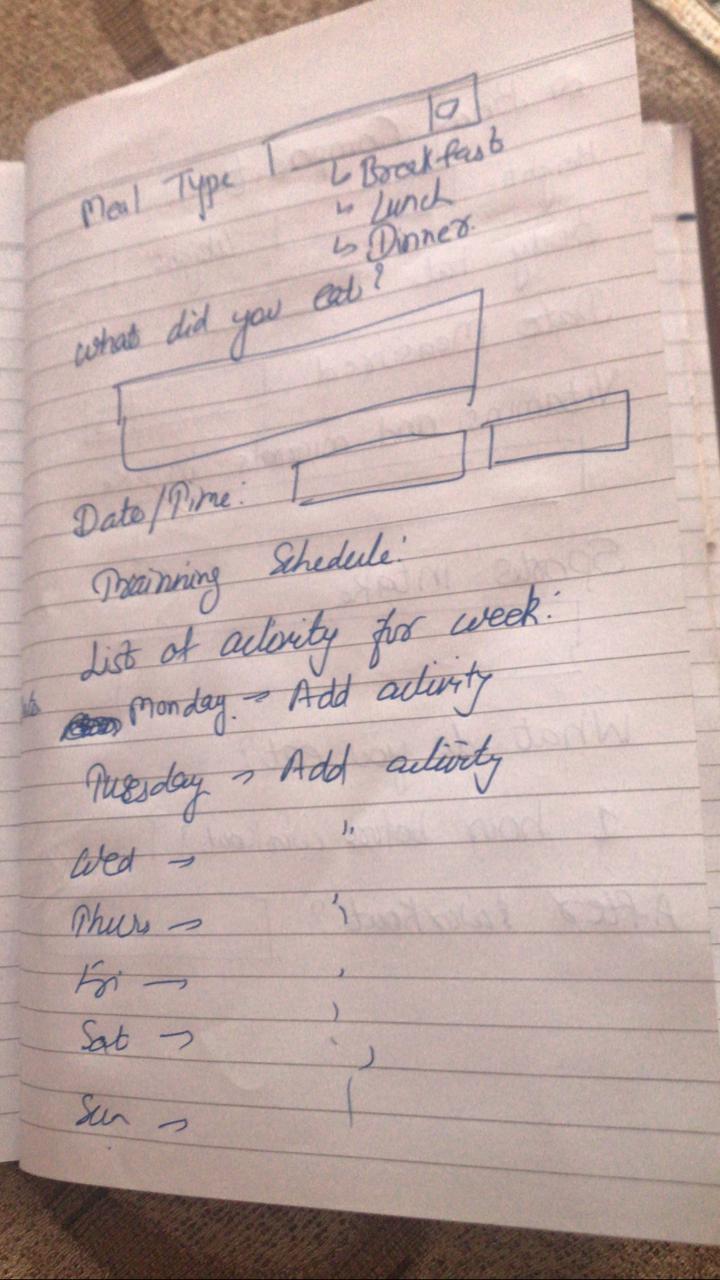 Meal Type
↳ Breakfast
↳ Lunch
↳ Dinner.
What did you eat?
Date/Time:
Trainning Schedule:
List of activity for week:
Monday. → Add activity
Tuesday → Add activity
Wed → "
Thurs → "
Fri →
Sat →
Sun →